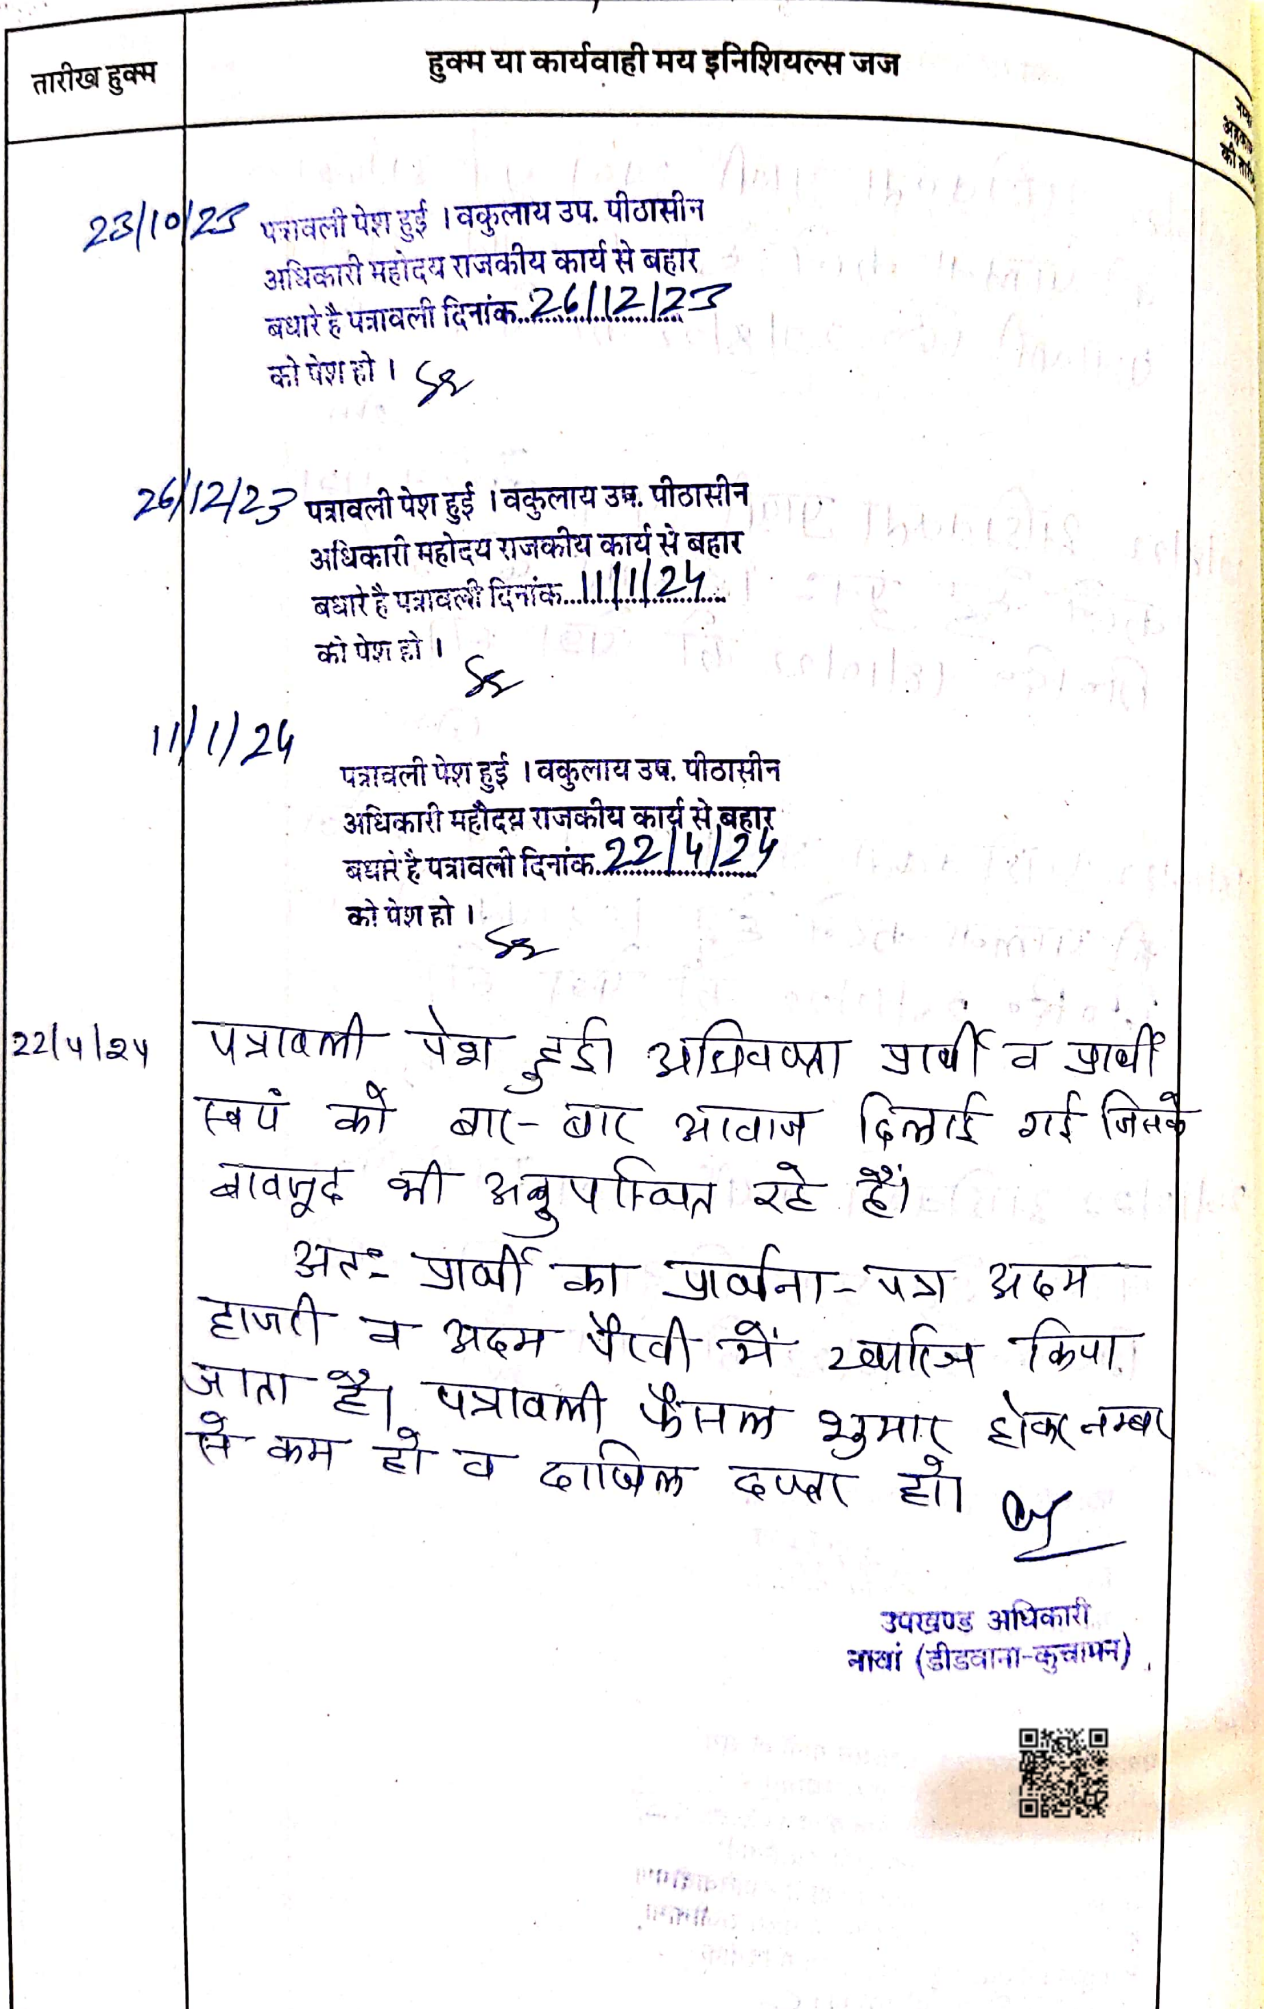 तारीख हुक्म
हुक्म या कार्यवाही मय इनिशियल्स जज
अहकाम
की तारी
23/10/23 पत्रावली पेश हुई । वकुलाय उप. पीठासीन
अधिकारी महोदय राजकीय कार्य से बहार
बधारे है पत्रावली दिनांक 26/12/23
को पेश हो ।
26/12/23 पत्रावली पेश हुई । वकुलाय उप. पीठासीन
अधिकारी महोदय राजकीय कार्य से बहार
बधारे है पत्रावली दिनांक 11/1/24
को पेश हो ।
11/1/24
पत्रावली पेश हुई । वकुलाय उप. पीठासीन
अधिकारी महोदय राजकीय कार्य से बहार
बधारे है पत्रावली दिनांक 22/4/24
को पेश हो ।
22/4/24 पत्रावली पेश हुई। अधिवक्ता प्रार्थी व प्रार्थी
स्वयं को बार-बार आवाज दिलाई गई जिसके
बावजूद भी अनुपस्थित रहे हैं।
अतः प्रार्थी का प्रार्थना-पत्र अदम
हाजरी व अदम पैरवी में खारिज किया
जाता है। पत्रावली फैसल शुमार होकर नम्बर
से कम हो व दाखिल दफ्तर हो।
उपखण्ड अधिकारी
नावां (डीडवाना-कुचामन)